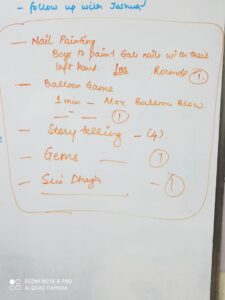 - follow up with Jashua
- Nail Painting
Boys to paint Gals nails with their
left hand. 1m Rounds 1
- Balloon Game
1 min - Max Balloon Blow
1
- Story telling - (4)
- Gems 1
- Sui Dhaga - 1
REDMI NOTE 6 PRO
AI DUAL CAMERA